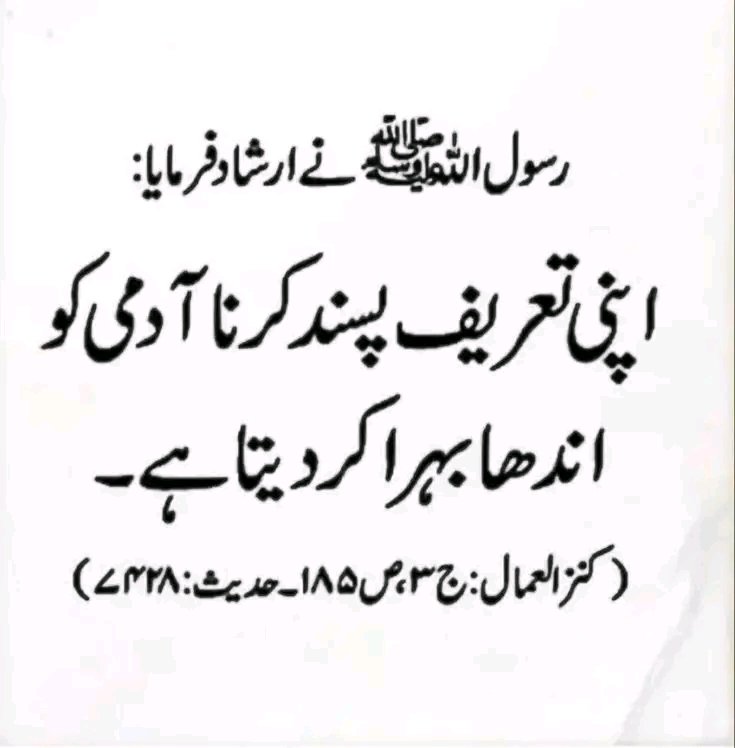 رسول اللہ ﷺ نے ارشاد فرمایا:
اپنی تعریف پسند کرنا آدمی کو
اندھا بہرا کر دیتا ہے۔
(کنز العمال: ج ۳، ص ۱۸۵۔ حدیث: ۷۴۲۸)